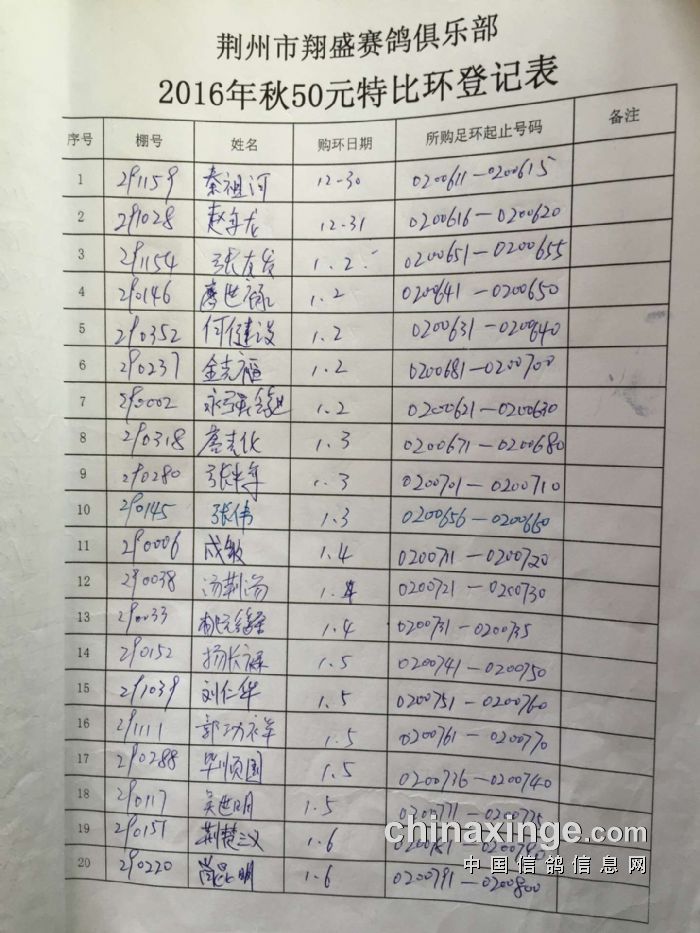 荆州市翔盛赛鸽俱乐部
2016年秋50元特比环登记表
序号 棚号 姓名 购环日期 所购足环起止号码 备注
1 291159 秦祖河 12-30 0200611—0200615
2 291028 12.31 0200616—0200620
3 291154 张友发 1.2 0200651—0200655
4 290146 1.2 0200641—0200650
5 290352 何健设 1.2 0200631—0200640
6 290237 金克福 1.2 0200681—0200700
7 290002 1.2 0200621—0200630
8 290318 1.3 0200671—0200680
9 290280 1.3 0200701—0200710
10 290145 张伟 1.3 0200656—0200660
11 290006 成敏 1.4 0200711—0200720
12 290038 汤荆汤 1.4 0200721—0200730
13 290033 1.4 0200731—0200735
14 290152 杨长禄 1.5 0200741—0200750
15 291039 刘仁华 1.5 0200751—0200760
16 291111 郭功祥 1.5 0200761—0200770
17 290288 毕顺国 1.5 0200736—0200740
18 290117 吴世明 1.5 0200771—0200775
19 290151 荆楚三义 1.6
20 290220 1.6 0200791—0200800
chinaxinge.com
中国信鸽信息网